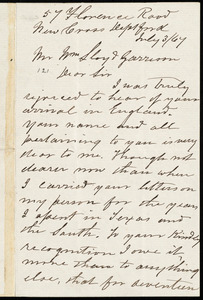 57 Florence Road
New Cross Deptford
July 3/67
Mr Wm Lloyd Garrison
Dear Sir
I was truly
rejoiced to hear of your
arrival in England.
Your name and all
pertaining to you is very
dear to me. Though not
dearer now than when
I carried your letters on
my person for the years
I spent in Texas and
the South. To your kindly
recognition I owe it
more than to anything
else, that for seventeen